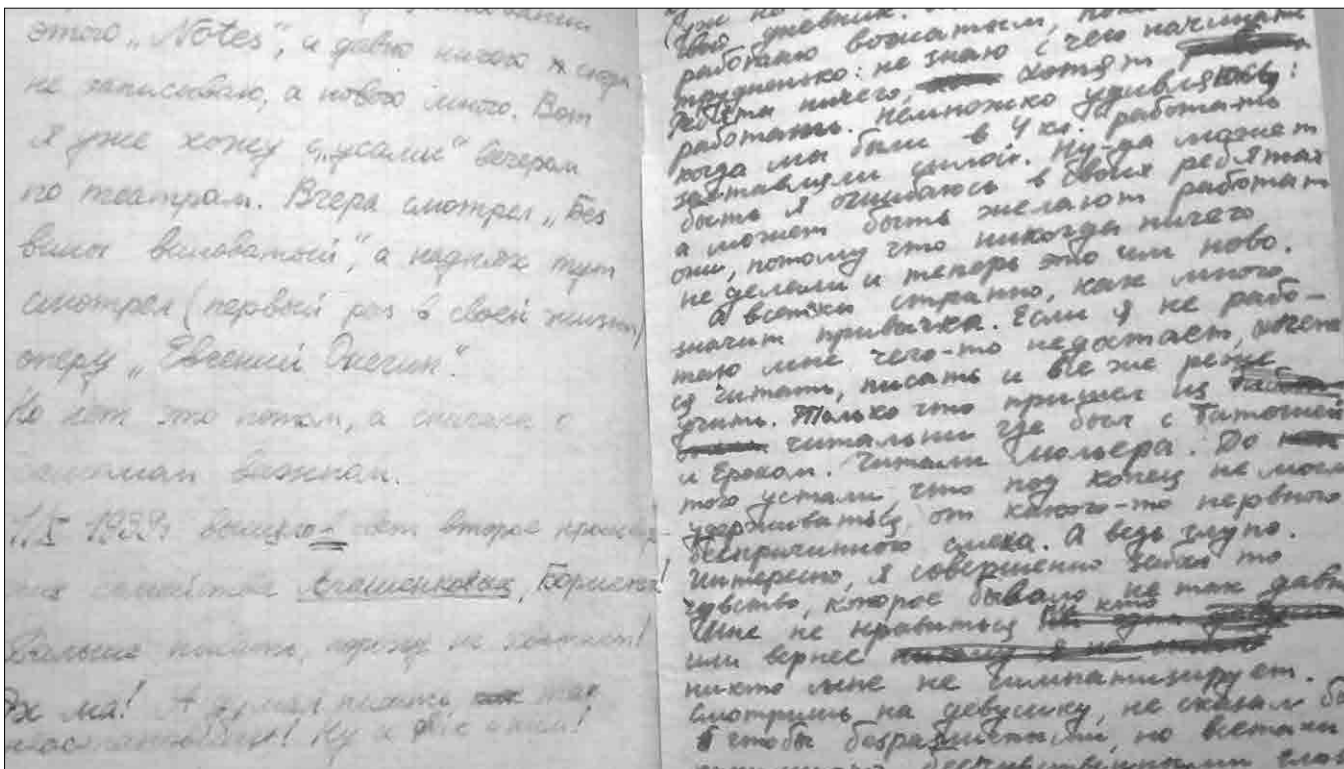 этого „Notes“, и давно ничего сюда
не записываю, а нового много. Вот
я уже хожу с „усами“ вечером
по театрам. Вчера смотрел „Без
вины виноватый“, а на днях тут
смотрел (первый раз в своей жизни)
оперу „Евгений Онегин“.
Но нет это потом, а сначала о
самом важном.
1/X 1939г вышло в свет второе
семейства Агашенковых, Бориска!
Больше писать, пороху не хватает!
Эх ма! А думал писать так
Ну и с ним!
свой дневник.
работаю вожатым,
трудненько: не знаю с чего начинать
Ребята ничего, хотят
работать. Немножко удивляюсь:
когда мы были в 4 кл. работать
заставляли силой. Ну-да может
быть я ошибаюсь в своих ребятах
а может быть желают работать
они, потому что никогда ничего
не делали и теперь это им ново.
А всетаки странно, как много
значит привычка. Если я не рабо-
таю мне чего-то недостает,
ся читать, писать и все же реже
учить. Только что пришел из
читальни где был с Титошей
и Ероном. Читали Мольера. До
того устали, что под конец не могли
удерживаться от какого-то нервного
беспричинного смеха. А ведь глупо.
Интересно, я совершенно забыл то
чувство, которое бывало не так давно
Мне не нравиться
или вернее
никто мне не симпатизирует.
Смотришь на девушку, не сказал бы
чтобы безразличными, но всетаки